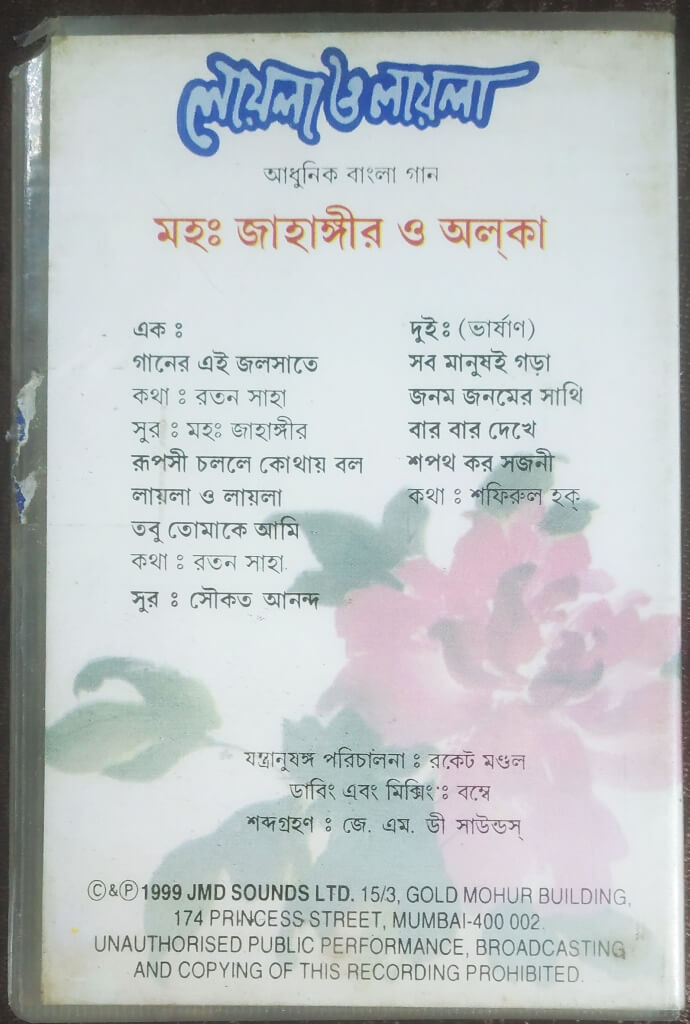 লায়লা ও লায়লা
আধুনিক বাংলা গান
মহঃ জাহাঙ্গীর ও অল্‌কা
এক ঃ
গানের এই জলসাতে
কথা ঃ রতন সাহা
সুর ঃ মহঃ জাহাঙ্গীর
রূপসী চললে কোথায় বল
লায়লা ও লায়লা
তবু তোমাকে আমি
কথা ঃ রতন সাহা
সুর ঃ সৌকত আনন্দ
দুইঃ (ভার্ষাণ)
সব মানুষই গড়া
জনম জনমের সাথি
বার বার দেখে
শপথ কর সজনী
কথা ঃ শফিরুল হক্
যন্ত্রানুষঙ্গ পরিচালনা ঃ রকেট মণ্ডল
ডাবিং এবং মিক্সিং ঃ বম্বে
শব্দগ্রহণ ঃ জে. এম. ডী সাউন্ডস্
©&℗1999 JMD SOUNDS LTD. 15/3, GOLD MOHUR BUILDING,
174 PRINCESS STREET, MUMBAI-400 002.
UNAUTHORISED PUBLIC PERFORMANCE, BROADCASTING
AND COPYING OF THIS RECORDING PROHIBITED.